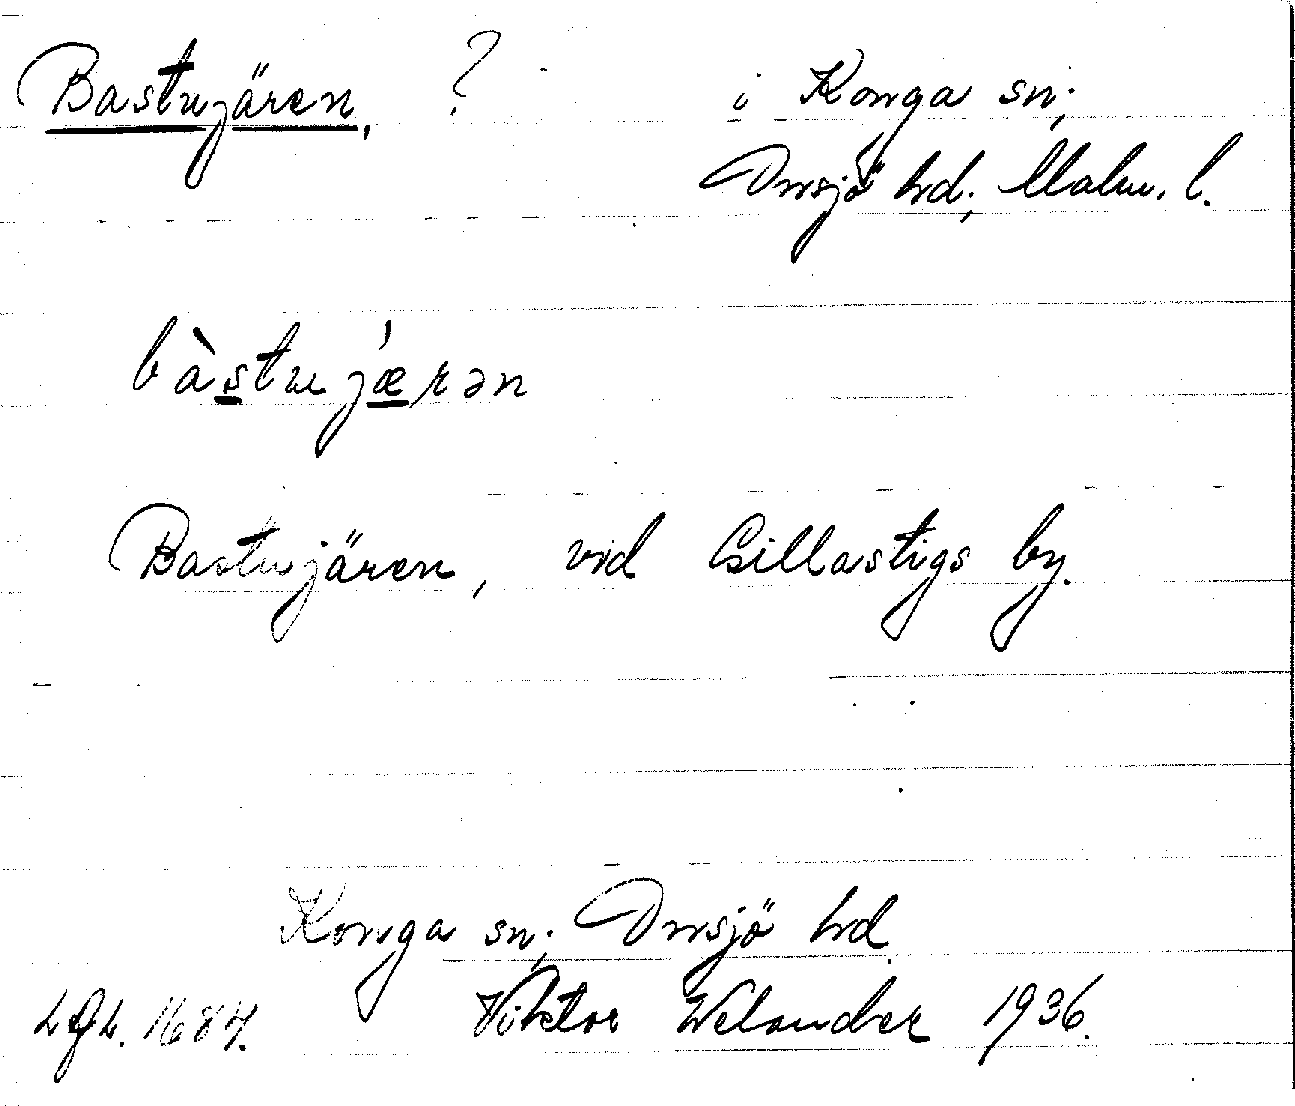 Bastujären, ? i Konga sn;
Onsjö hd; Malm. l.
bàstujǽrən
Bastujären, vid Gillastigs by.
Konga sn; Onsjö hd.
LGL. 1684. Viktor Welander 1936.